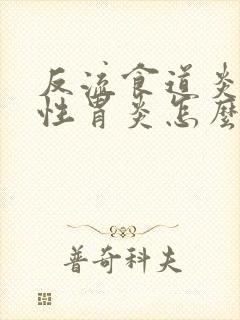 反流食道炎
性胃炎怎麼
普奇科夫